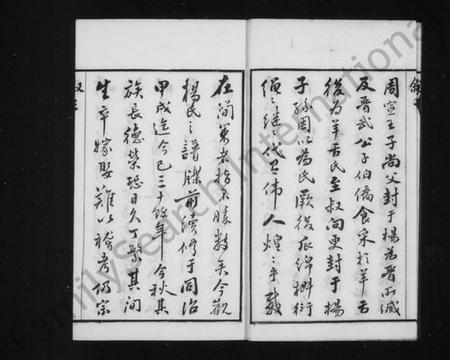 周宣王子尚父封于楊為晋所滅
及晋武公子伯僑食采於羊舌
後為羊舌氏至叔向更封于楊
子孫因以為氏厥後瓜綿椒衍
繩繩繼繼代有偉人煌煌乎載
在簡策者指不勝數矣今觀
楊氏之譜牒前續修于同治
甲戌迄今已三十餘年今秋其
族長德榮恐日久丁繁其間
生卒嫁娶難以稽考仍宗
FamilySearch International